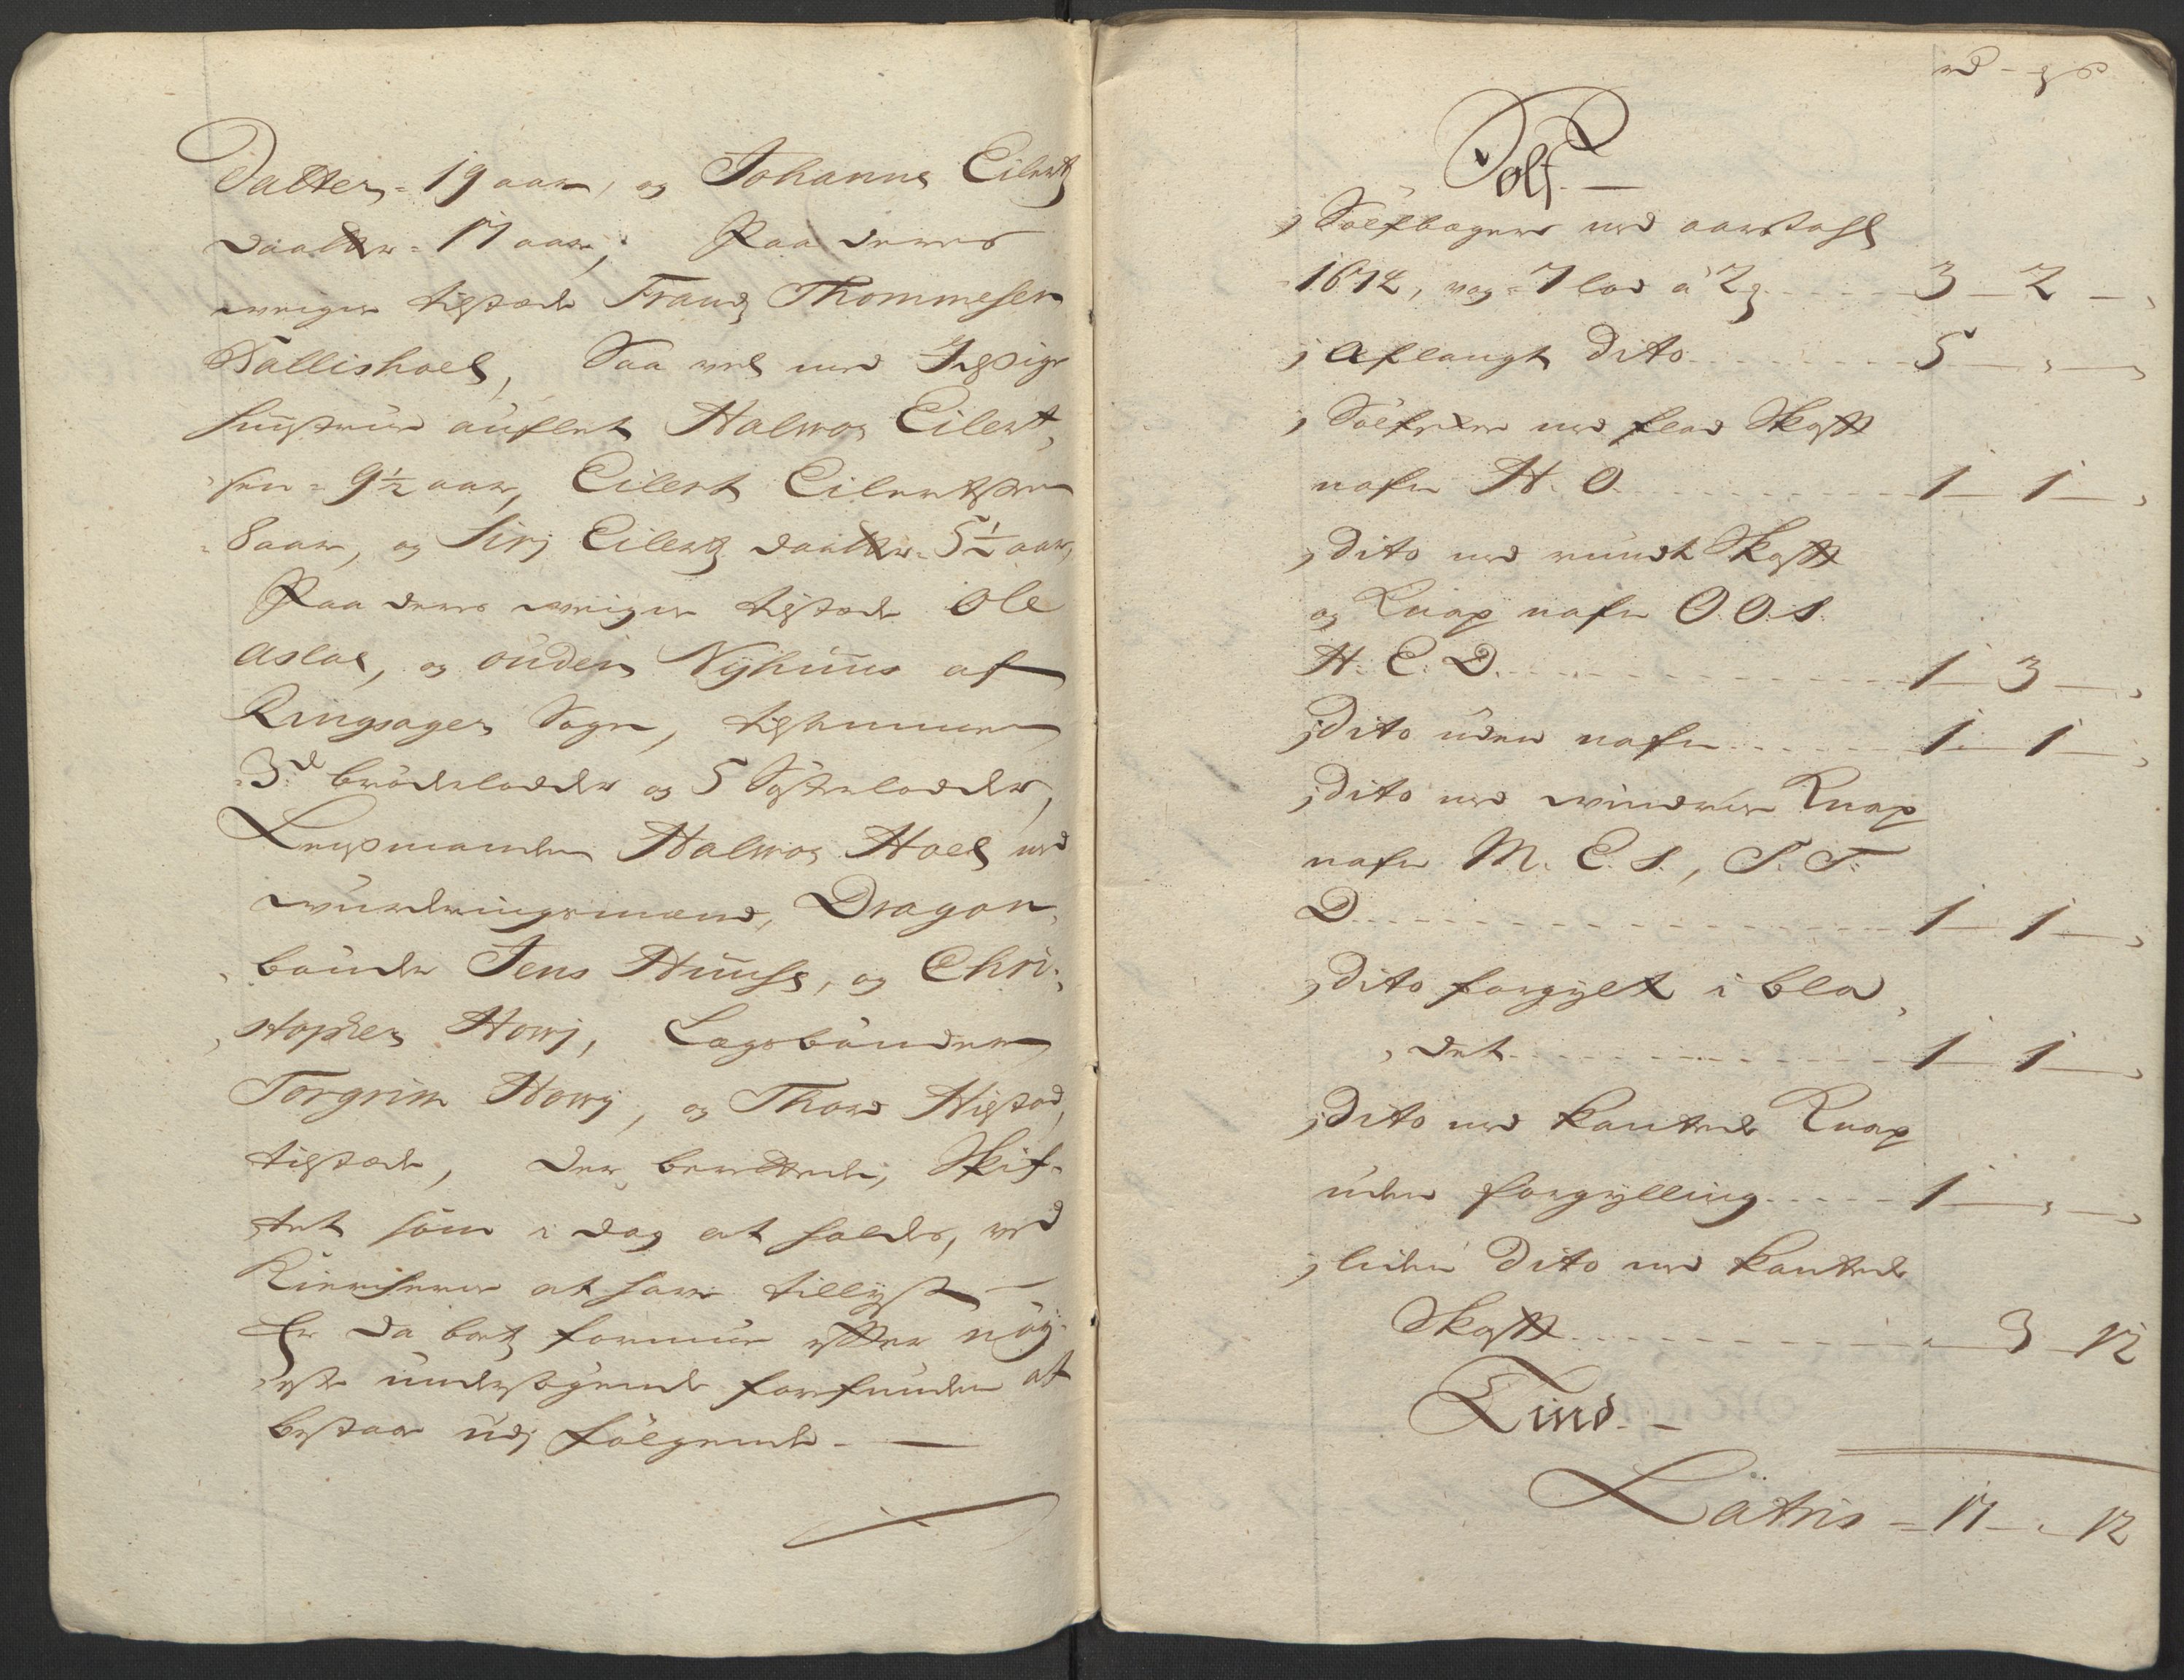 Datter, = 19 aar, og Johanne Eilertz
daatter = 17 aar, Paa deres
weigne tilstæde Frandz Thommesen
Tallishoel, Saa vel med Itzige
hustrue auflet Halwor Eilert,
sen = 9½ aar, Eilert Eilertsen
8 aar, og Sirj Eilertz daatter = 5½ aar,
Paa deres weigne tilstæde Ole
Aslac, og Ouden Nÿhuus af
Ringsager Sogn, tilkommer
3de brøderlodder og 5 Systerlodder,
Lensmanden Halwor Hoel med
wurderingsmænd, Dragon,
bønder Jens Huuse, og Chri,
stopher Howj, Lægsbønder
Torgrim Howj, og Thord Hilstad,
tilstæde, der berettede, Skif,
tet som i dag at holdes, ved
Kierchene at have tillÿst
Er da boetz formue efter nøÿ,
este undersøgende forefunden at
bestaae udj følgende. —
rd - ꝗ ß
Sølf. —
j Sølfbægere med aarstahl
1672, vog = 7 lod á 2 ꝗ - - - - 3 — 2 — ,
j Aflangt dito - - - - - - - 5 — , — ,
j Sølfskee med flad Skaftt
nafn H. O. - - - - - - - 1 — 1 — ,
j dito med rundt Skaftt
og Knap nafn O. O. S.
H. E. D. - - - - - - - - 1 — 3 — ,
j dito uden nafn - - - - - 1 — 1 — ,
j dito med windrue Knap
nafn M. E. S., S. T.
D. - - - - - - - - - - - 1 — 1 — ,
j dito forgÿlt i bla,
, det - - - - - - - - - - 1 — 1 — ,
j dito med kantede Knap
uden forgÿlling - - - - - 1 — , — ,
j liden dito med kantede
Skaftt - - - - - - - - , — 3 — 12
Tind. —
Latris = 17 — , — 12